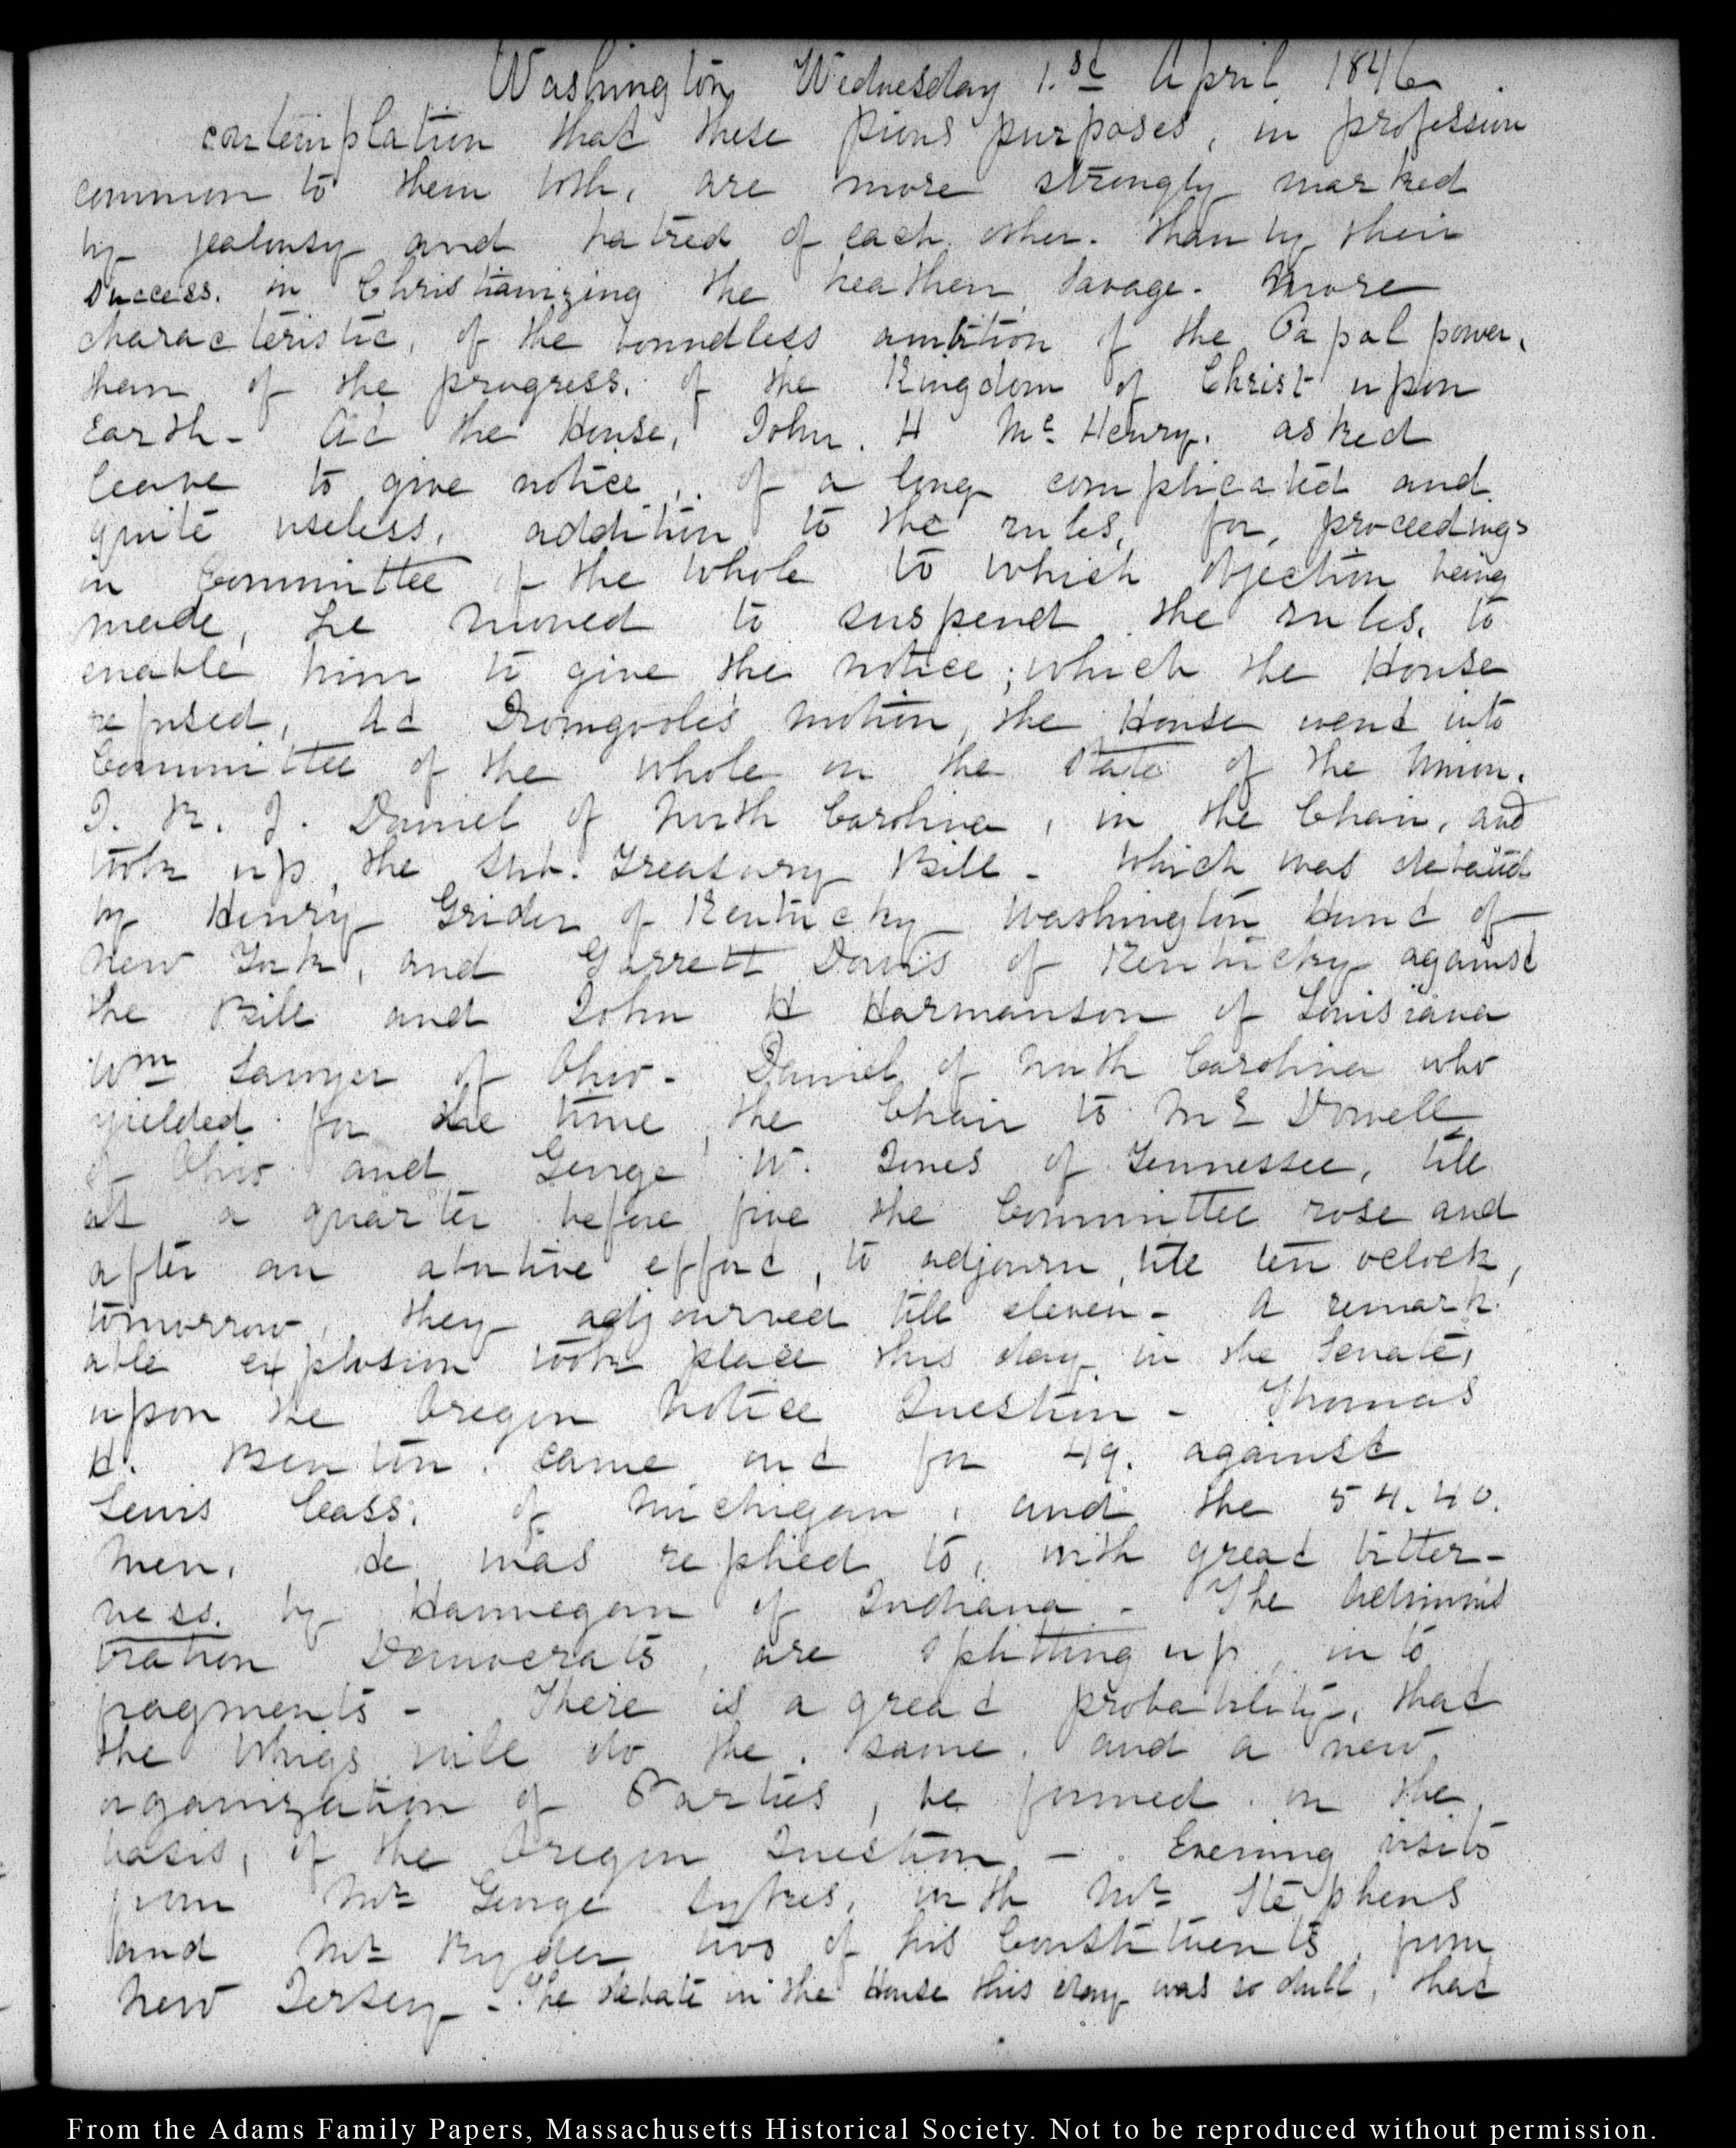 Washington Wednesday 1.st April 1846
contemplation that these pious purposes, in profession
common to them both, are more strongly marked
by jealousy and hatred of each other. than by their
success. in Christianizing the heathen savage. more
characteristic, of the boundless ambition of the Papal power,
than of the progress. of the Kingdom of Christ upon
Earth- At the House, John. H McHenry. asked
leave to give notice, of a long complicated and
quite useless, addition to the rules, for, proceedings
in Committee of the Whole to which objection being
made, he moved to suspend the rules, to
enable him to give the notice; which the House
refused, At Dromgoole's motion, the House went into
Committee of the whole on the state of the Union.
J. R. J. Daniel of North Carolina, in the Chair, and
took up, the Sub. Treasury Bill - which was debated
by Henry Grider of Kentucky Washington Hunt of
New York, and Garrett Davis of Kentucky against
the Bill and John H Harmanson of Louisiana
Wm Sawyer of Ohio - Daniel of North Carolina who
yielded for the time, the Chair to Mc Dowell
of Ohio and George W. Jones of Tennessee, till
at a quarter before five the Committee rose and
after an abortive effort, to adjourn, till ten oclock,
tomorrow, they adjourned till eleven - A remark
able explosion took place this day in the Senate,
upon the Oregon Notice Question - Thomas
H. Benton. came out for 49. against
Lewis Cass. of Michigan, and the 54.40.
men. he was replied to, with great bitter-
ness. by Hannegan of Indiana - The Adminis
tration Democrats, are splitting up, into
fragments - There is a great probability, that
the Whigs will do the. same. and a new,
organization of Parties, be formed. on the,
basis, of the Oregon Question -. Evening visits
from Mr George Sykes, with Mr Stephens
and Mr Ryder two of his Constituents, from
New Jersey - The debate in the House this day was so dull, that
From the Adams Family Papers, Massachusetts Historical Society. Not to be reproduced without permission.